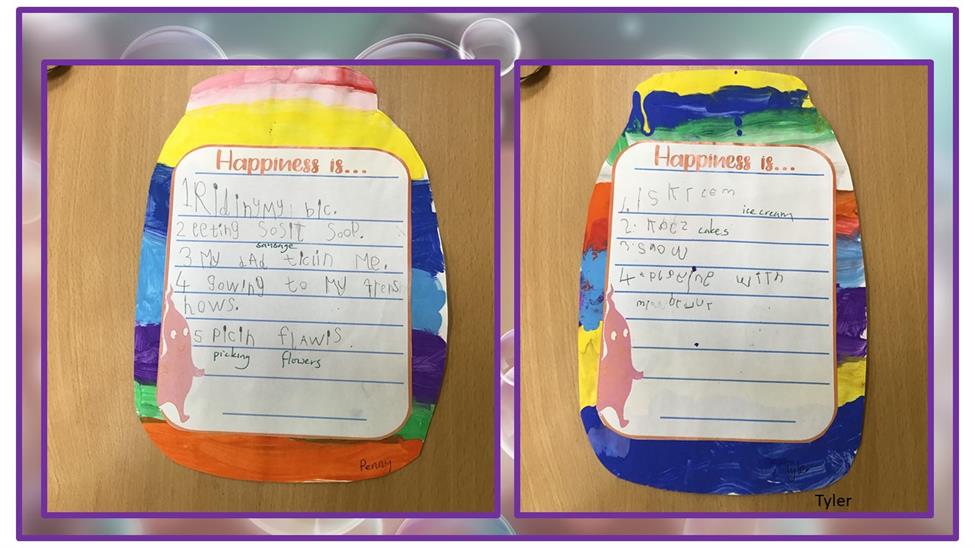 Happiness is...
1 Ridinymy bic.
2 eeting sosit soop.
sausage
3 My dAd ticiin Me.
4 gowing to My frens
hows.
5 picin flawis.
picking flowers
Penny
Happiness is...
1. IskRcem
ice cream
2. Kacz cakes
3. snow
4. apleeing with
Tyler
Tyler